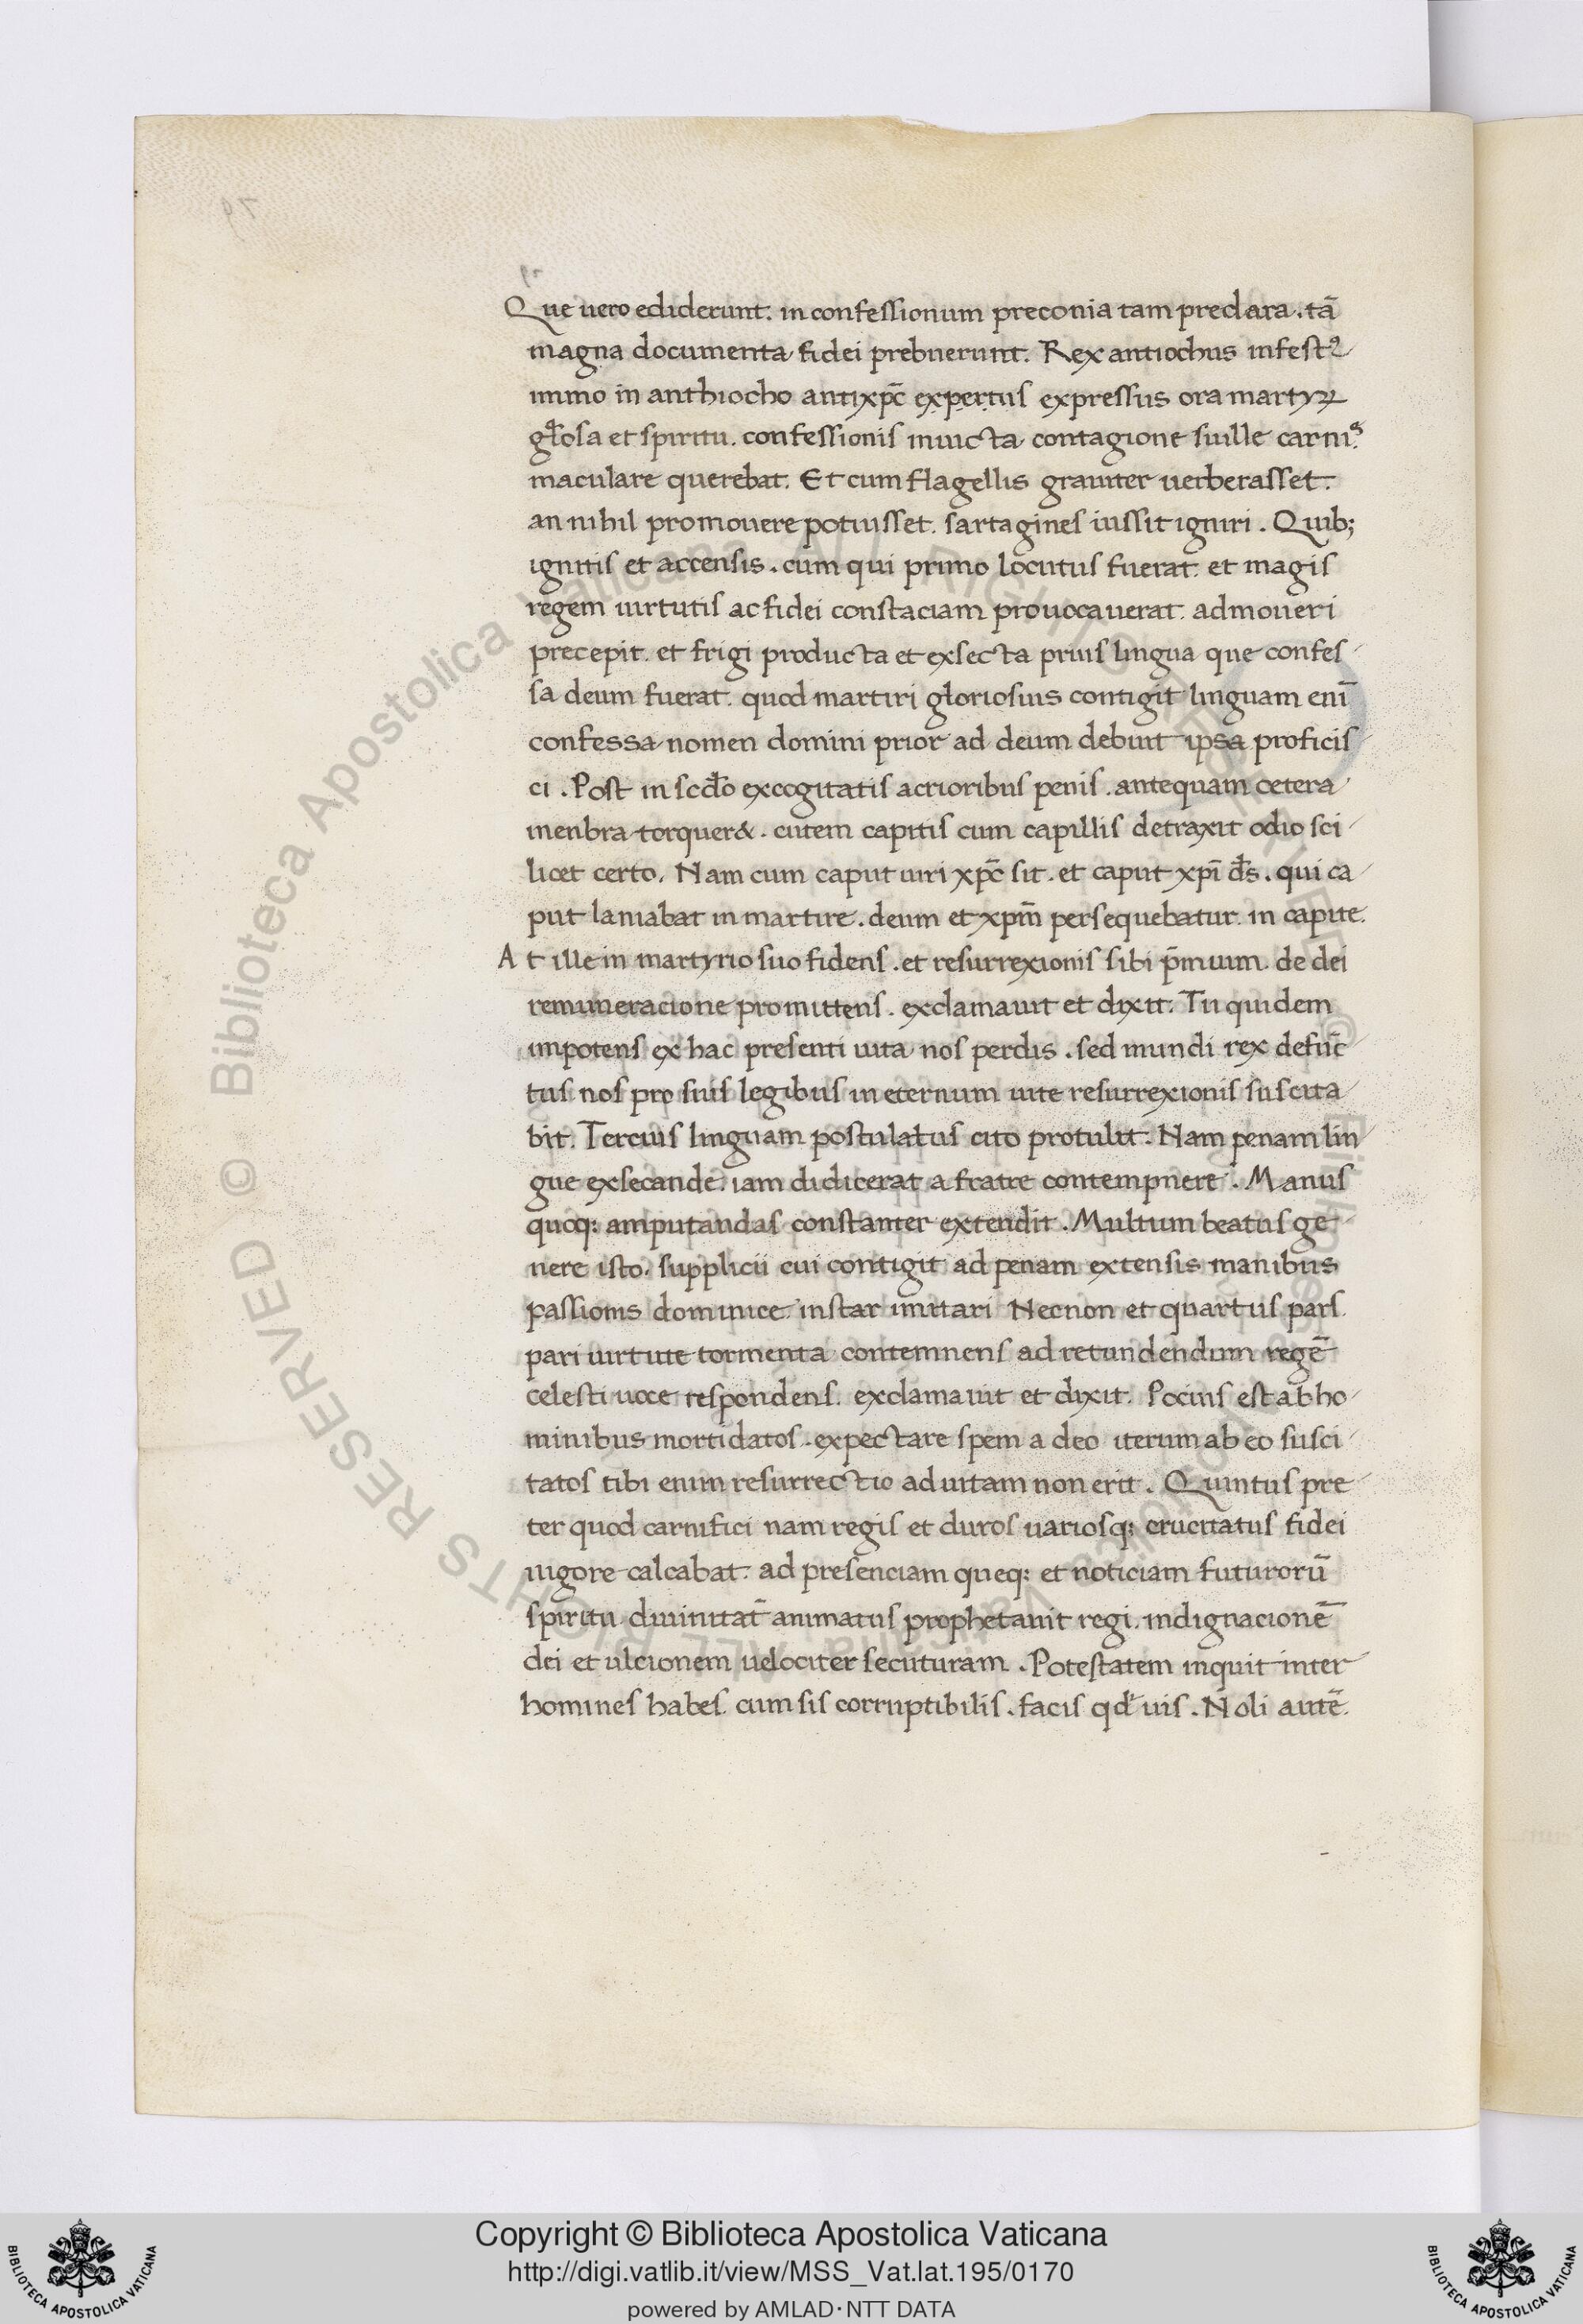 79
79
Que uero ediderunt. in confessionum preconia tam preclara. tā
magna documenta fidei prebuerunt. Rex antiochus infestꝰ
immo in anthiocho antixp̄c expertus expressus ora martyꝝ
gl̄osa et spiritu. confessionis inuicta contagione suille carnis
maculare querebat. Et cum flagellis grauiter uerberasset.
an nihil promouere potuisset. sartagines iussit igniri. Quib;
ignitis et accensis. cum qui primo locutus fuerat. et magis
regem uirtutis ac fidei constaciam prouocauerat. admoueri
precepit. et frigi producta et exsecta prius lingua que confes
sa deum fuerat. quod martiri gloriosius contigit linguam enī
confessa nomen domini prior ad deum debuit ipsa proficis
ci. Post in scd̄o excogitatis acrioribus penis. antequam cetera
menbra torquer&. cutem capitis cum capillis detraxit odio sci
licet certo. Nam cum caput uiri xp̄c sit. et caput xp̄i d̄s. qui ca
put laniabat in martire. deum et xp̄m persequebatur. in capite.
At ille in martyrio suo fidens. et resurrexionis sibi p̄mium. de dei
remuneracione promittens. exclamauit et dixit. Tu quidem
impotens ex hac presenti uita nos perdis. sed mundi rex defūc
tus nos pro suis legibus in eternum uite resurrexionis suscita
bit. Tercius linguam postulatus cito protulit. Nam penam lin
gue exsecande. iam didicerat a fratre contempnere. Manus
quoq; amputandas constanter extendit. Multum beatus ge
nere isto. supplicii cui contigit ad penam extensis manibus
passionis dominice instar imitari Necnon et quartus pars.
pari uirtute tormenta contemnens ad retundendum regē
celesti uoce respondens. exclamauit et dixit. Pocius est ab ho
minibus morti datos. expectare spem a deo iterum ab eo susci
tatos tibi enim resurrectio ad uitam non erit. Quintus pre
ter quod carnifici nam regis et duros uariosq; crucitatus fidei
uigore calcabat. ad presenciam queq; et noticiam futurorū
spiritu diuinitat̄ animatus prophetauit regi. indignacionē
dei et ulcionem uelociter secuturam. Potestatem inquit inter
homines habes. cum sis corruptibilis. facis qd̄ uis. Noli autē.
© Biblioteca Apostolica Vaticana ALL RIGHTS RESERVED
Copyright © Biblioteca Apostolica Vaticana
http://digi.vatlib.it/view/MSS_Vat.lat.195/0170
powered by AMLAD·NTT DATA
BIBLIOTECA APOSTOLICA VATICANA
BIBLIOTECA APOSTOLICA VATICANA